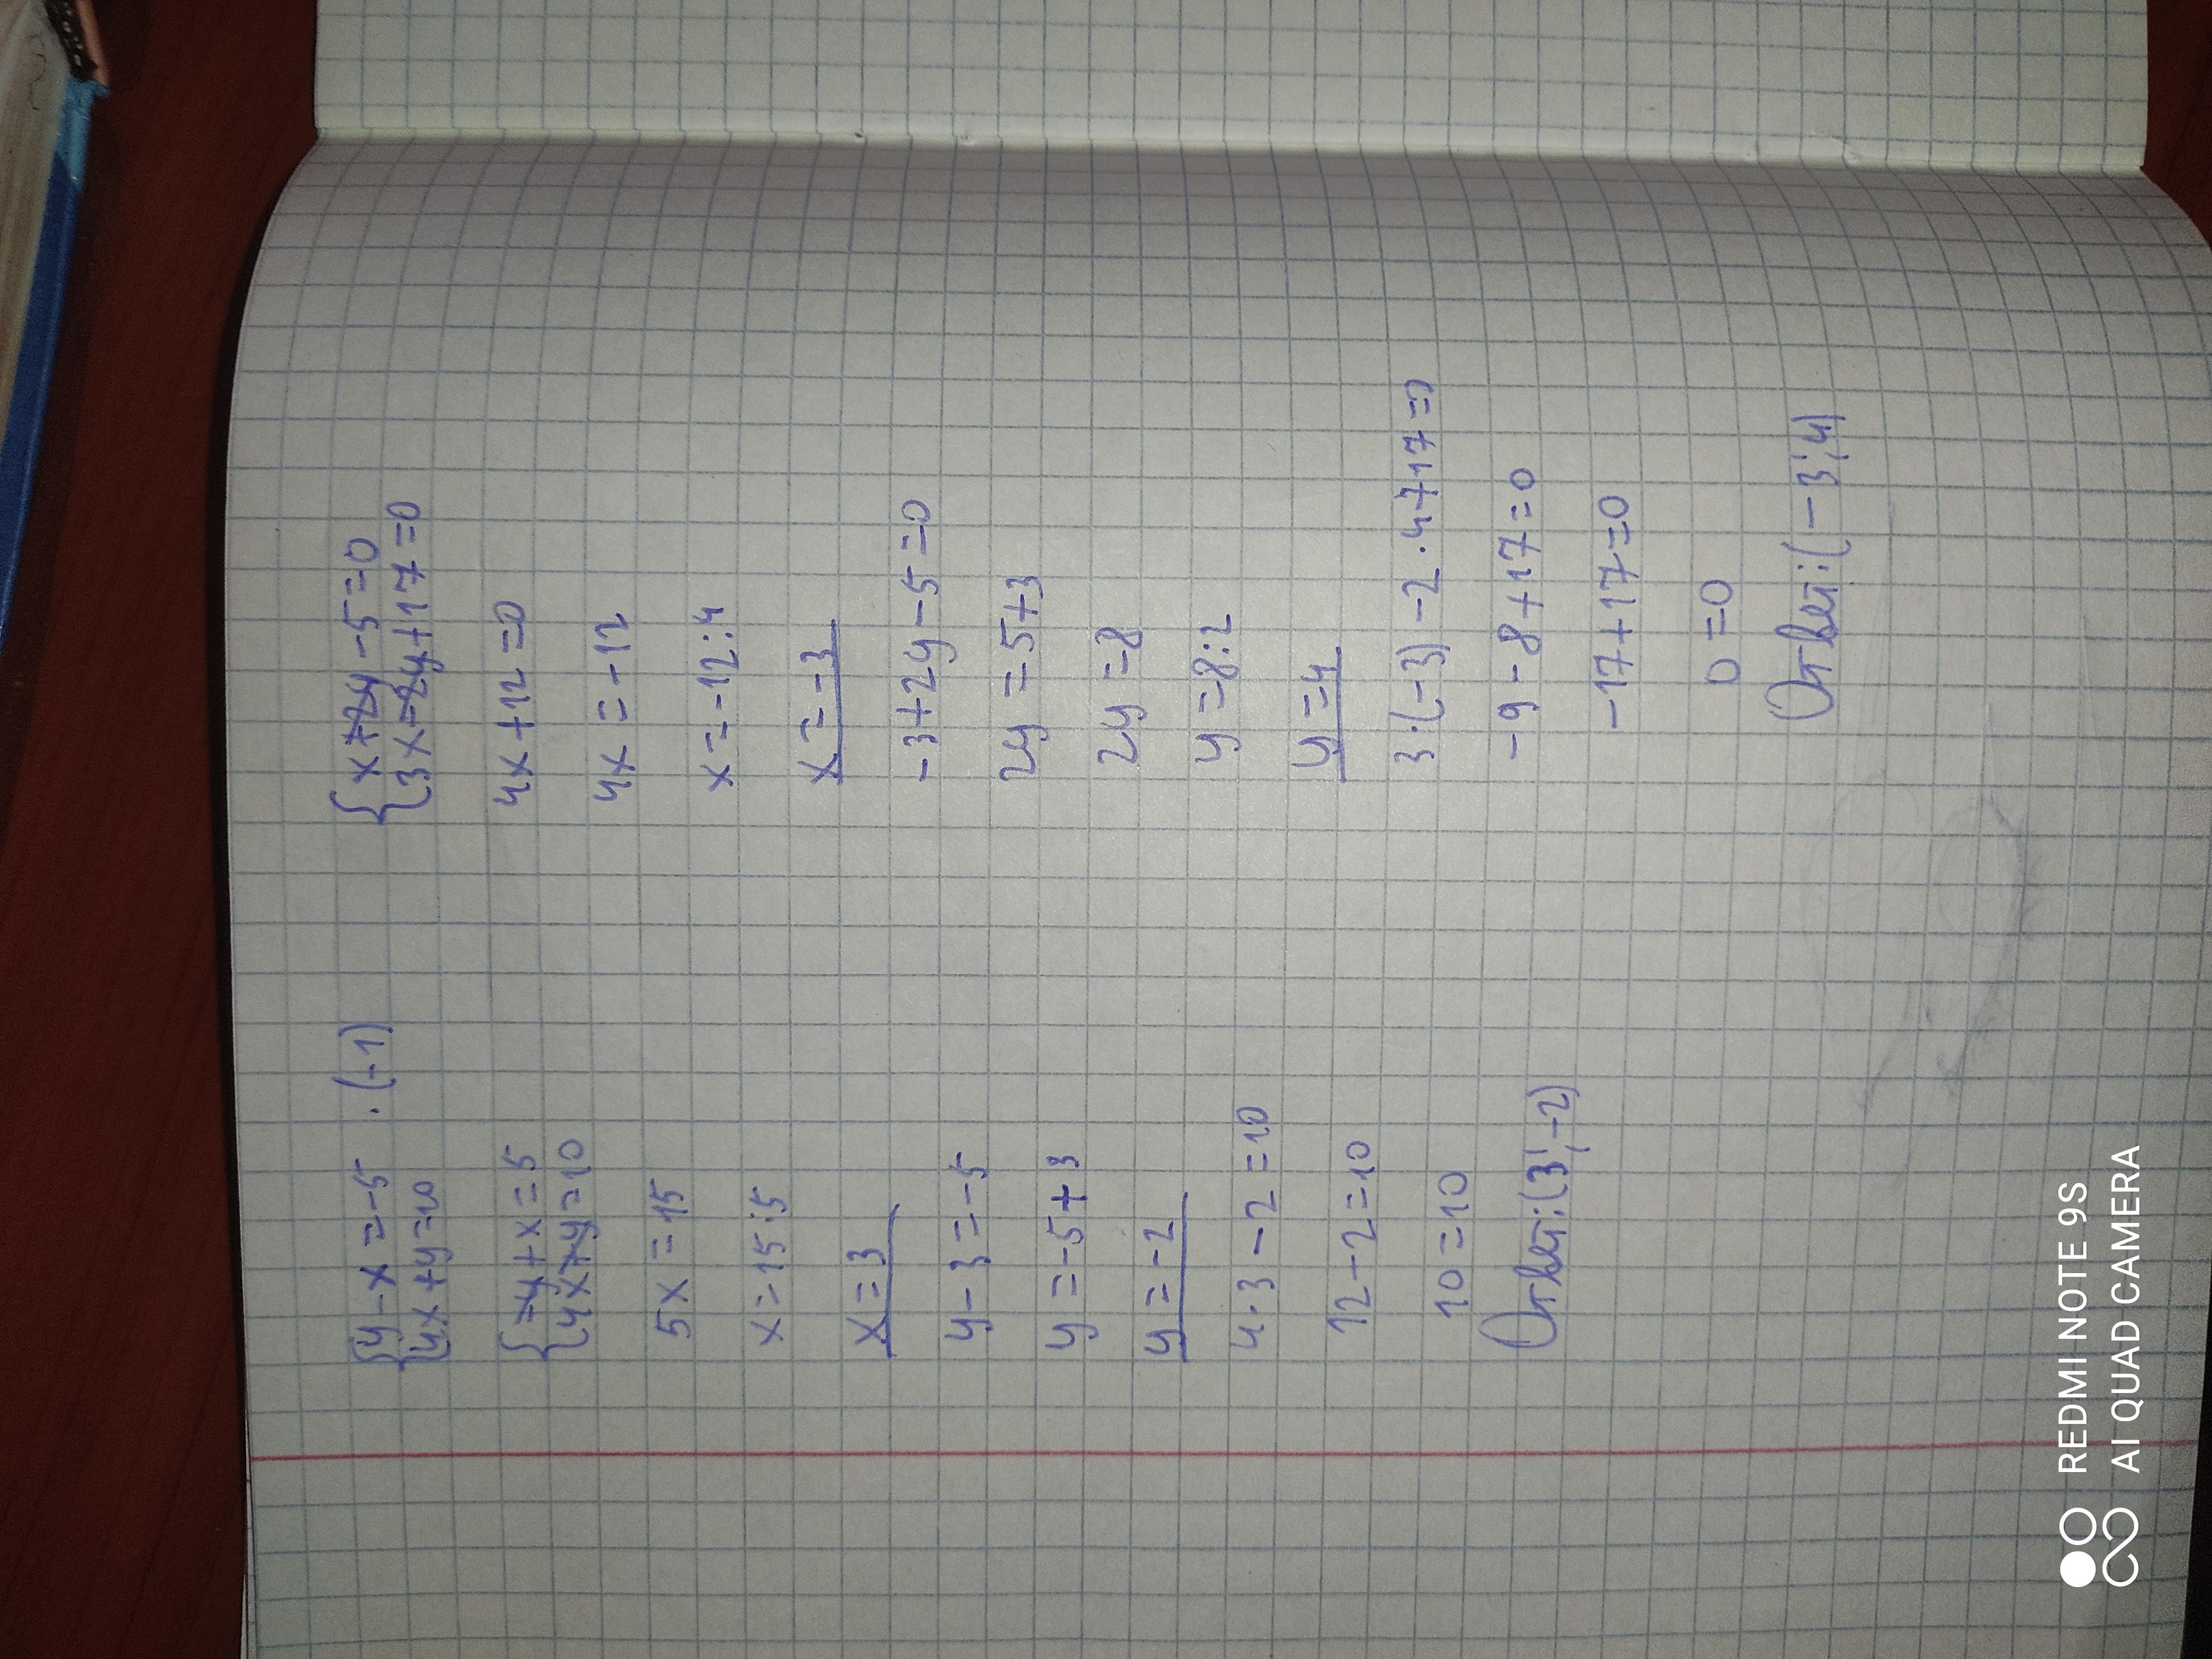 {y-x=-5 ·(-1)
{4x+y=10
{-y+x=5
{4x+y=10
5x=15
x=15:5
x=3
y-3=-5
y=-5+3
y=-2
4·3-2=10
12-2=10
10=10
Ответ:(3;-2)
{x+2y-5=0
{3x-2y+17=0
4x+12=0
4x=-12
x=-12:4
x=-3
-3+2y-5=0
2y=5+3
2y=8
y=8:2
y=4
3·(-3)-2·4+17=0
-9-8+17=0
-17+17=0
0=0
Ответ:(-3;4)
REDMI NOTE 9S
AI QUAD CAMERA